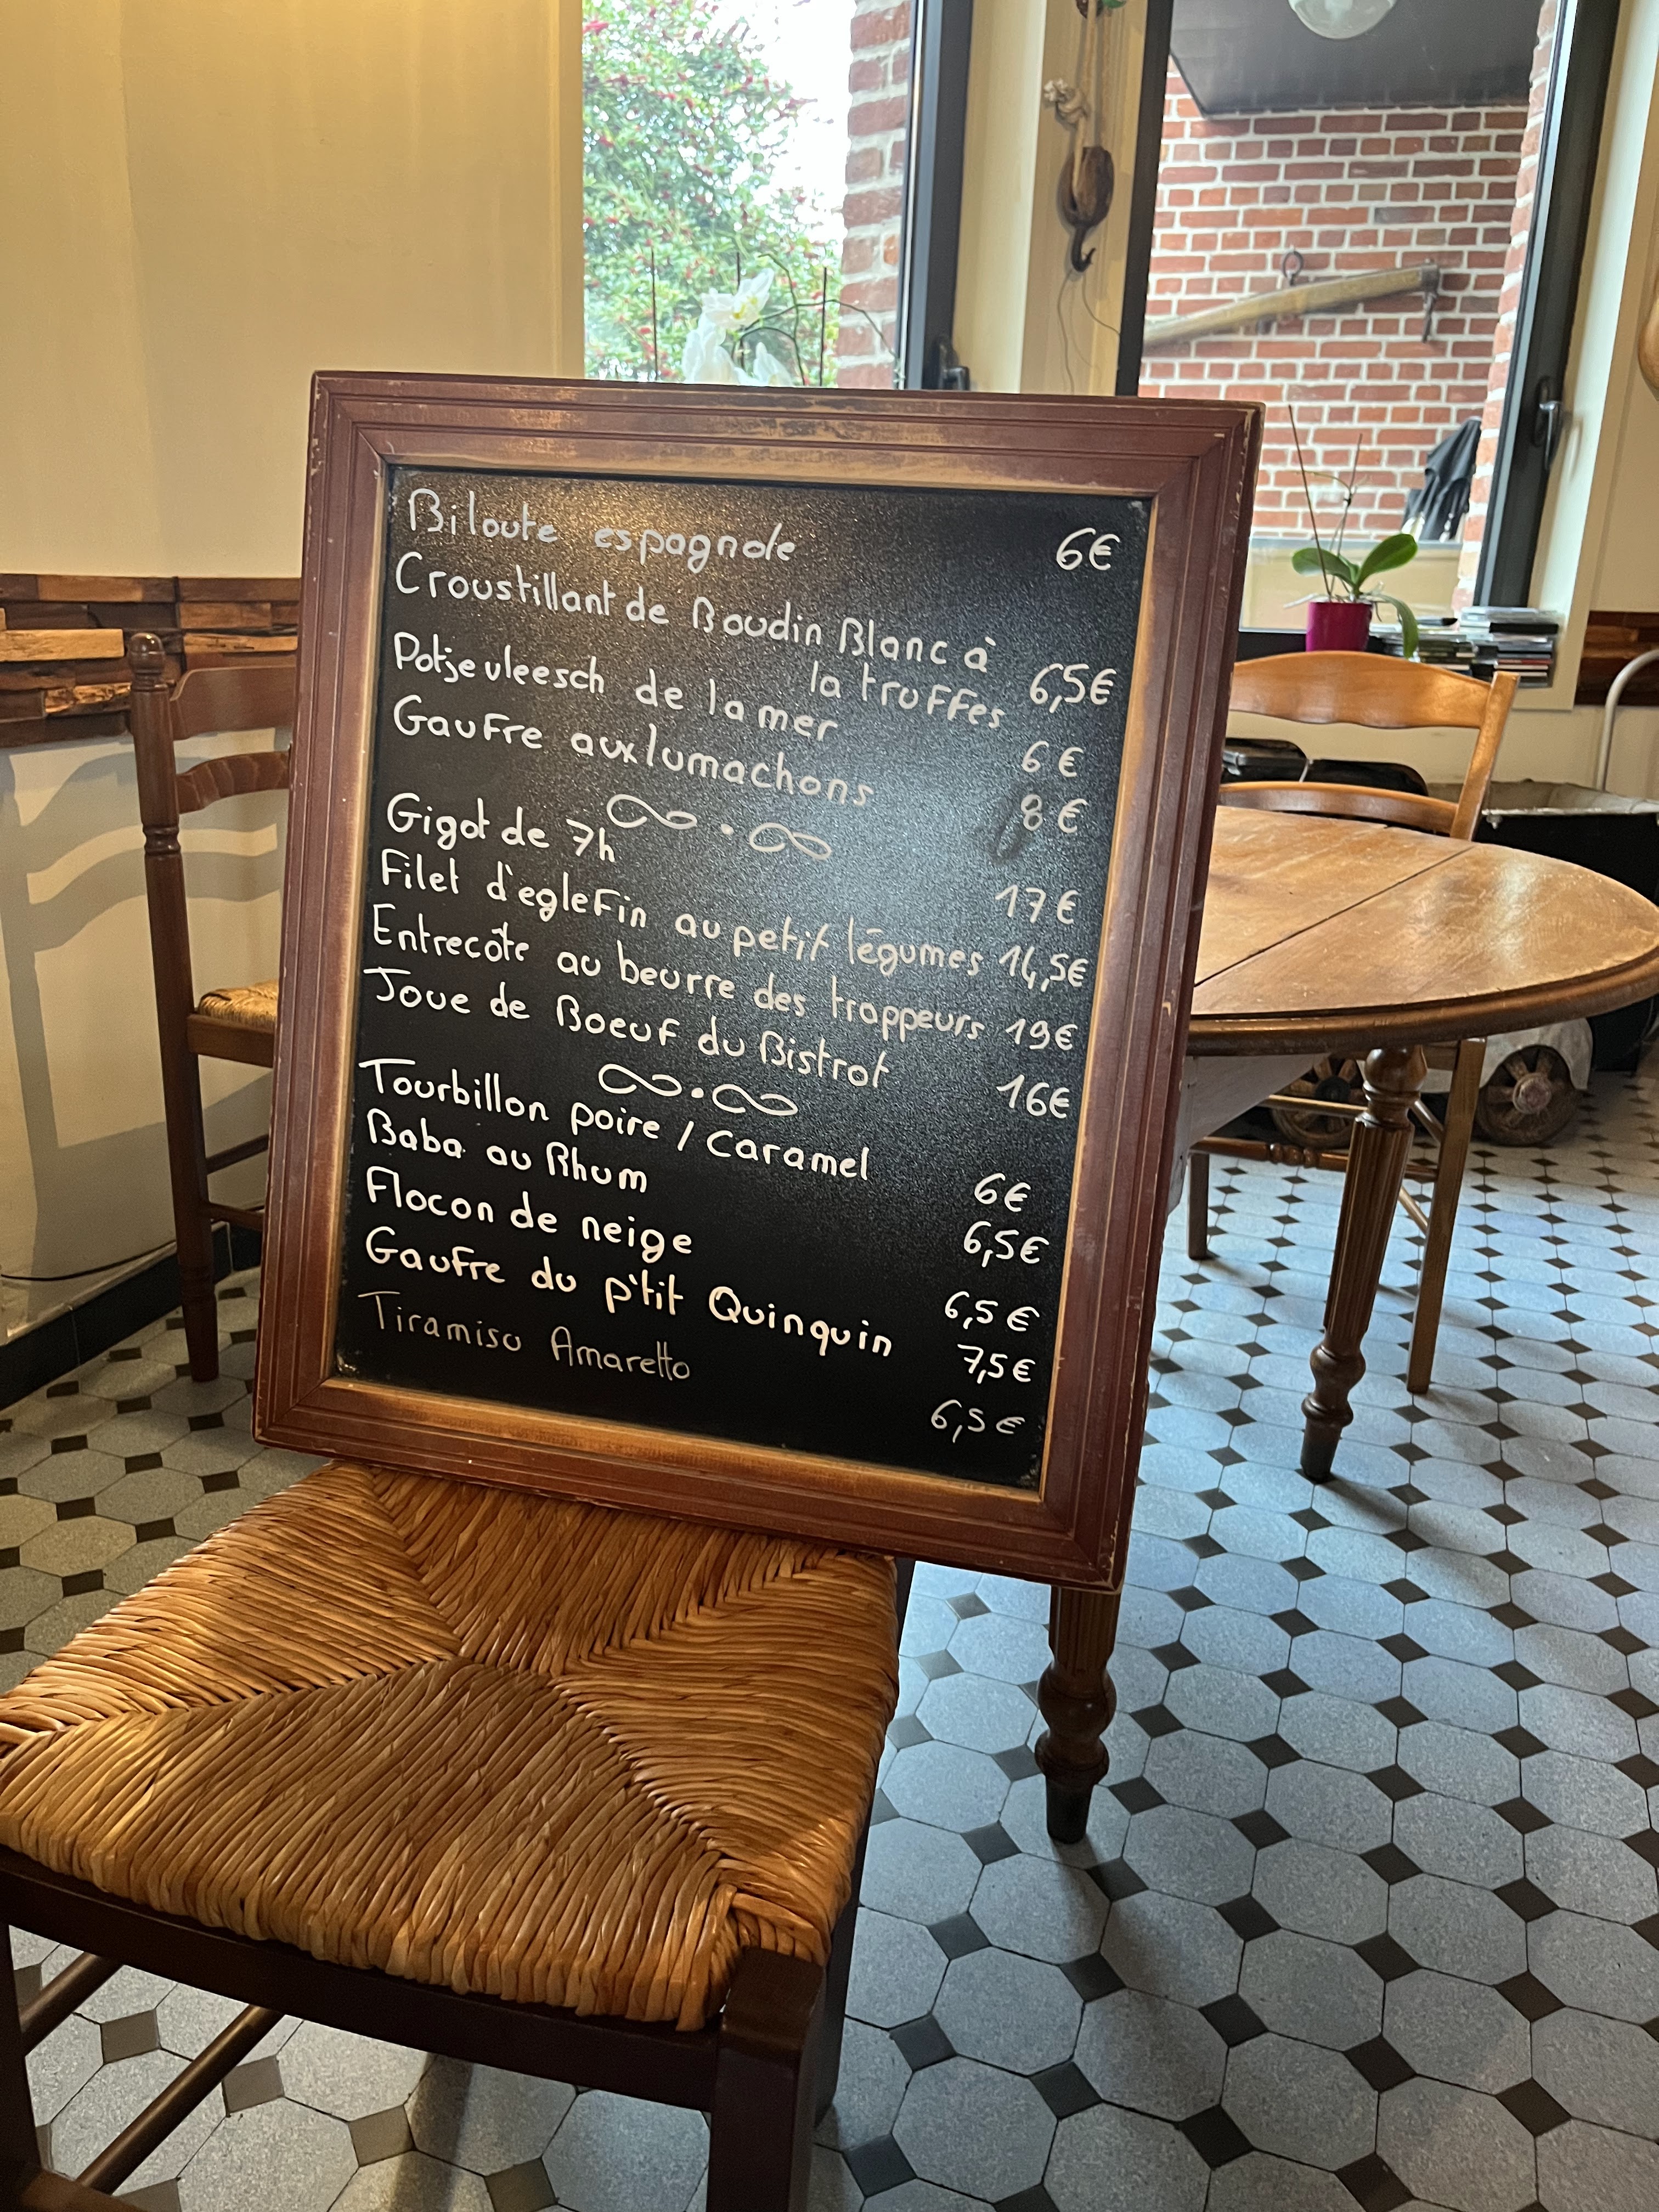 Biloute espagnole 6€
Croustillant de Boudin Blanc à
la truffes 6,5€
Potje vleesch de la mer 6€
Gaufre aux lumachons 8€
Gigot de 7h 17€
Filet d'eglefin au petit légumes 14,5€
Entrecôte au beurre des trappeurs 19€
Joue de Boeuf du Bistrot 16€
Tourbillon poire / Caramel 6€
Baba au Rhum 6,5€
Flocon de neige 6,5€
Gaufre du p'tit Quinquin 7,5€
Tiramisu Amaretto 6,5€